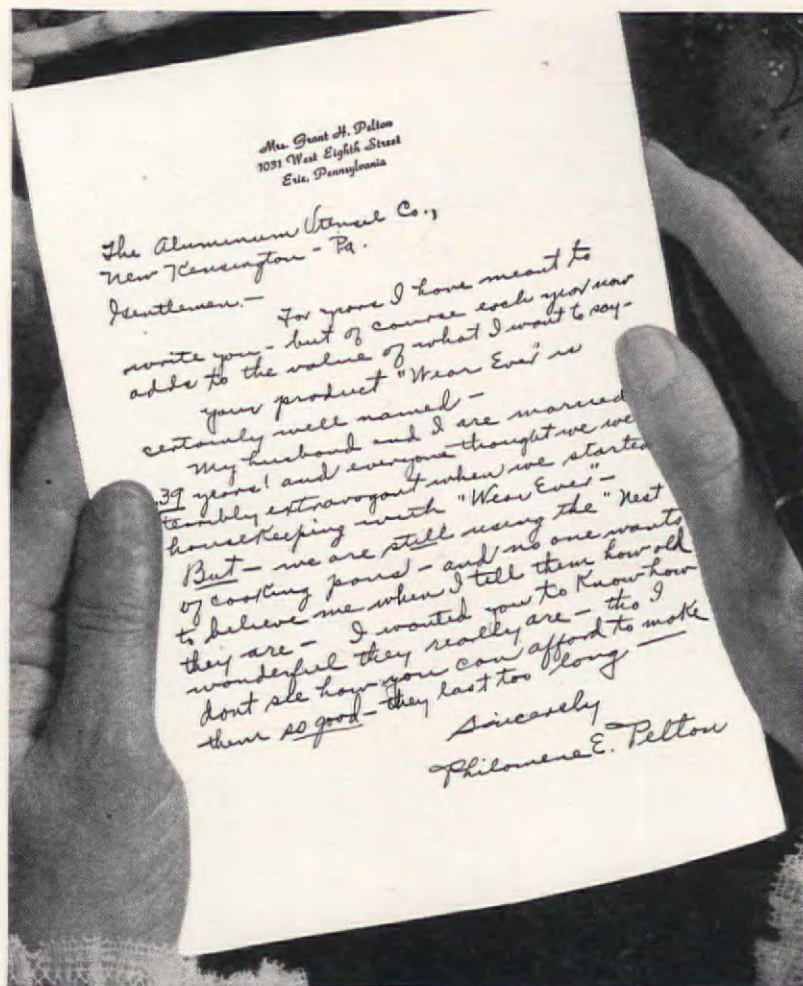 Mrs. Grant H. Pelton
1031 West Eighth Street
Erie, Pennsylvania
The Aluminum Utensil Co.,
New Kensington - Pa.
Gentlemen. -
For years I have meant to
write you - but of course each year now
adds to the value of what I want to say -
your product "Wear Ever" is
certainly well named -
My husband and I are married
39 years! and everyone thought we we
terribly extravagant when we started
housekeeping with "Wear Ever" -
But - we are still using the "Nest
of cooking pans" - and no one wants
to believe me when I tell them how old
they are - I wanted you to know how
wonderful they really are - tho I
dont see how you can afford to make
them so good - they last too long —
Sincerely
Philomene E. Pelton